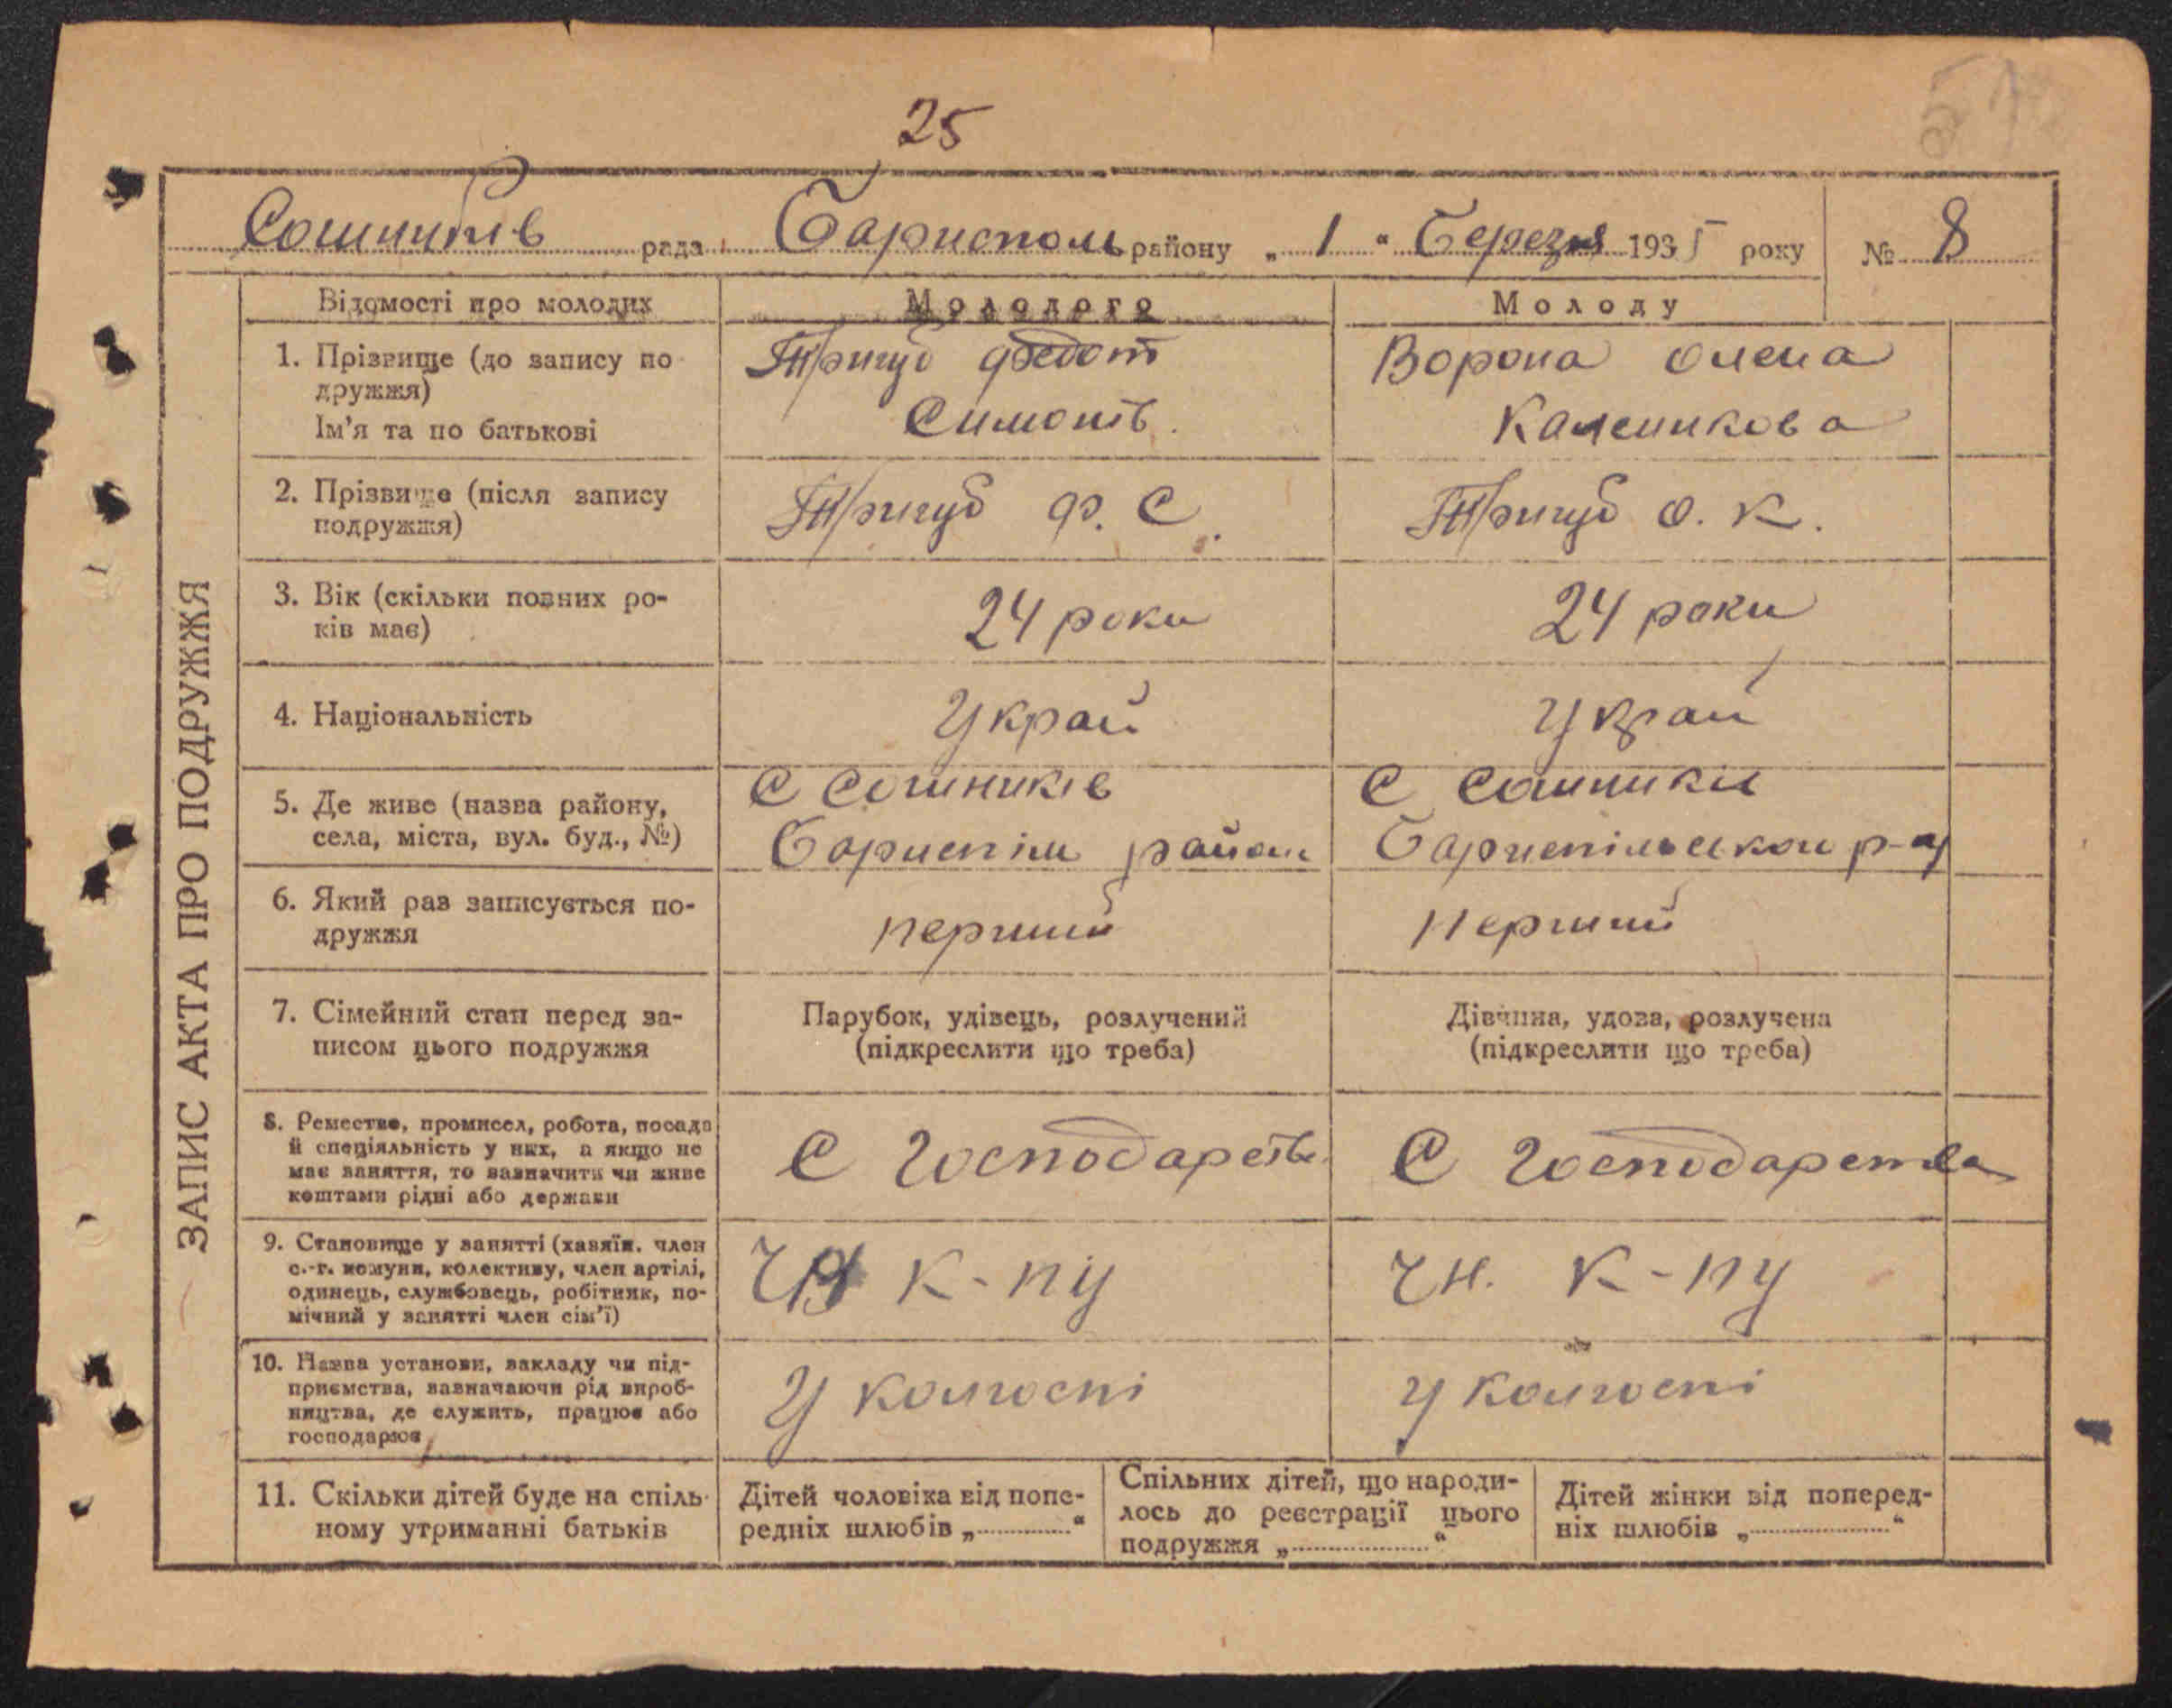 25
51
Сошників рада Бариспол району „ 1 “ Березня 1935 року № 8
ЗАПИС АКТА ПРО ПОДРУЖЖЯ
Відомості про молодих
Молодого
Молоду
1. Прізвище (до запису по
дружжя)
Ім’я та по батькові
Тригуб Федот
Симонів.
Ворона Олена
Каленикова
2. Прізвище (після запису
подружжя)
Тригуб Ф. С.
Тригуб О. К.
3. Вік (скільки повних ро-
ків має)
24 роки
24 роки
4. Національність
Украй
Украй
5. Де живе (назва району,
села, міста, вул. буд., №)
С Сошників
Бориспіль район
С Сошники
Бариспільськои р-у
6. Який раз записується по-
дружжя
перший
перший
7. Сімейний стан перед за-
писом цього подружжя
Парубок, удівець, розлучений
(підкреслити що треба)
Дівчина, удова, розлучена
(підкреслити що треба)
8. Ремество, промисел, робота, посада
й спеціяльність у них, а якщо не
має заняття, то зазначити чи живе
коштами рідні або держави
С Господарств
С Господарства
9. Становище у занятті (хазяїн, член
с.-г. комуни, колективу, член артілі,
одинець, службовець, робітник, по-
мічний у занятті член сім’ї)
Чл К-пу
Чл. К-пу
10. Назва установи, закладу чи під-
приємства, зазначаючи рід вироб-
ництва, де служить, працює або
господарює
У колгоспі
У колгоспі
11. Скільки дітей буде на спіль-
ному утриманні батьків
Дітей чоловіка від попе-
редніх шлюбів „ “
Спільних дітей, що народи-
лось до реєстрації цього
подружжя „ “
Дітей жінки від поперед-
ніх шлюбів „ “